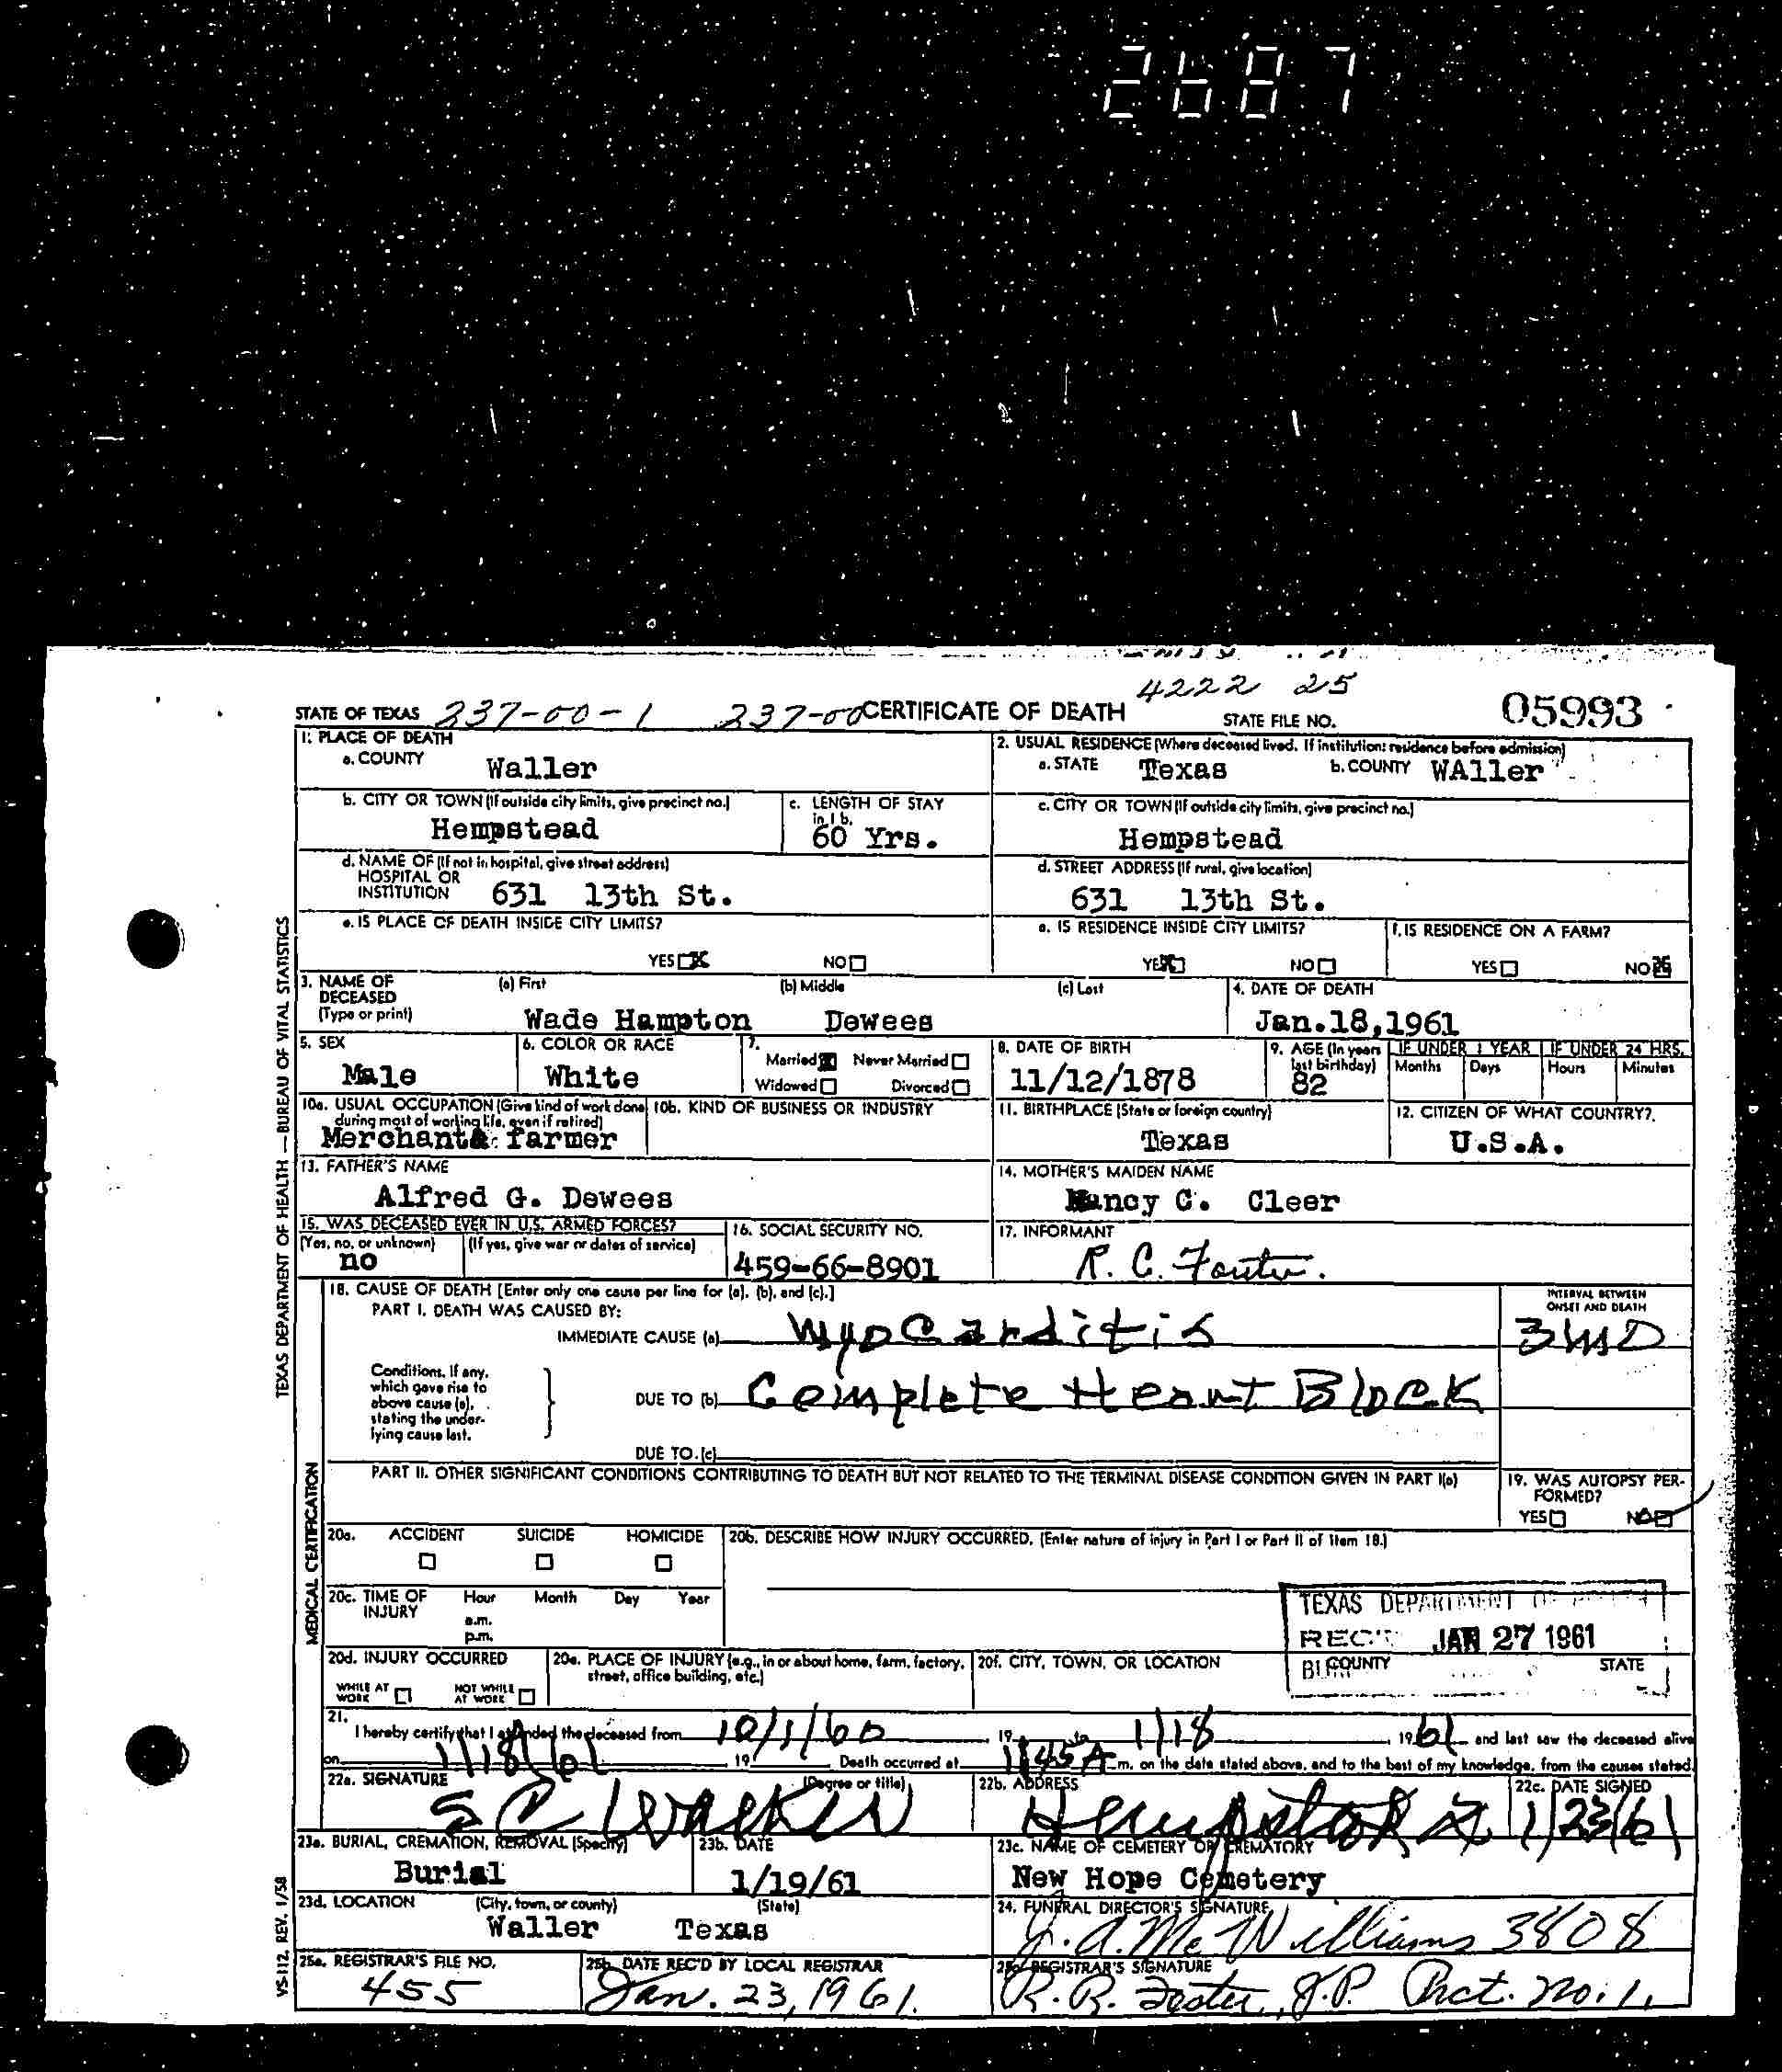 2687
4222 25
STATE OF TEXAS 237-00-1 237-00 CERTIFICATE OF DEATH STATE FILE NO. 05993
1. PLACE OF DEATH
a. COUNTY Waller
2. USUAL RESIDENCE (Where deceased lived. If institution: residence before admission)
a. STATE Texas b. COUNTY WAller
b. CITY OR TOWN (If outside city limits, give precinct no.) Hempstead
c. LENGTH OF STAY in 1 b. 60 Yrs.
c. CITY OR TOWN (If outside city limits, give precinct no.) Hempstead
d. NAME OF (If not in hospital, give street address) HOSPITAL OR INSTITUTION 631 13th St.
d. STREET ADDRESS (If rural, give location) 631 13th St.
e. IS PLACE OF DEATH INSIDE CITY LIMITS? YES X NO
e. IS RESIDENCE INSIDE CITY LIMITS? YES X NO
f. IS RESIDENCE ON A FARM? YES NO X
3. NAME OF DECEASED (Type or print) (a) First (b) Middle (c) Last
Wade Hampton Dewees
4. DATE OF DEATH Jan.18,1961
5. SEX Male
6. COLOR OR RACE White
7. Married Never Married Widowed Divorced
8. DATE OF BIRTH 11/12/1878
9. AGE (In years last birthday) 82
IF UNDER 1 YEAR Months Days
IF UNDER 24 HRS. Hours Minutes
10a. USUAL OCCUPATION (Give kind of work done during most of working life, even if retired) Merchant& farmer
10b. KIND OF BUSINESS OR INDUSTRY
11. BIRTHPLACE (State or foreign country) Texas
12. CITIZEN OF WHAT COUNTRY? U.S.A.
13. FATHER'S NAME Alfred G. Dewees
14. MOTHER'S MAIDEN NAME Nancy C. Cleer
15. WAS DECEASED EVER IN U.S. ARMED FORCES? (Yes, no, or unknown) (If yes, give war or dates of service) no
16. SOCIAL SECURITY NO. 459-66-8901
17. INFORMANT R. C.
18. CAUSE OF DEATH [Enter only one cause per line for (a), (b), and (c).]
PART I. DEATH WAS CAUSED BY:
IMMEDIATE CAUSE (a) Myocarditis
INTERVAL BETWEEN ONSET AND DEATH 3 MO
Conditions, if any, which gave rise to above cause (a), stating the underlying cause last.
DUE TO (b) Complete Heart Block
DUE TO (c)
PART II. OTHER SIGNIFICANT CONDITIONS CONTRIBUTING TO DEATH BUT NOT RELATED TO THE TERMINAL DISEASE CONDITION GIVEN IN PART I(a)
19. WAS AUTOPSY PERFORMED? YES NO
20a. ACCIDENT SUICIDE HOMICIDE
20b. DESCRIBE HOW INJURY OCCURRED. (Enter nature of injury in Part I or Part II of item 18.)
20c. TIME OF INJURY Hour Month Day Year a.m. p.m.
TEXAS DEPARTMENT OF
REC'D JAN 27 1961
20d. INJURY OCCURRED WHILE AT WORK NOT WHILE AT WORK
20e. PLACE OF INJURY (e.g., in or about home, farm, factory, street, office building, etc.)
20f. CITY, TOWN, OR LOCATION COUNTY STATE
21. I hereby certify that I attended the deceased from 10/1/60, 19 to 1/18, 1961 and last saw the deceased alive
on 1/18/61 19 Death occurred at 1145 A m. on the date stated above, and to the best of my knowledge, from the causes stated.
22a. SIGNATURE (Degree or title) S C Walker
22b. ADDRESS Hempstead
22c. DATE SIGNED 1/23/61
23a. BURIAL, CREMATION, REMOVAL (Specify) Burial
23b. DATE 1/19/61
23c. NAME OF CEMETERY OR CREMATORY New Hope Cemetery
23d. LOCATION (City, town, or county) (State) Waller Texas
24. FUNERAL DIRECTOR'S SIGNATURE J. A. McWilliams 3808
25a. REGISTRAR'S FILE NO. 455
25b. DATE REC'D BY LOCAL REGISTRAR Jan. 23, 1961.
25c. REGISTRAR'S SIGNATURE R. R. Foster, J.P. Prct. no. 1.
TEXAS DEPARTMENT OF HEALTH — BUREAU OF VITAL STATISTICS
MEDICAL CERTIFICATION
VS-112. REV. 1/58